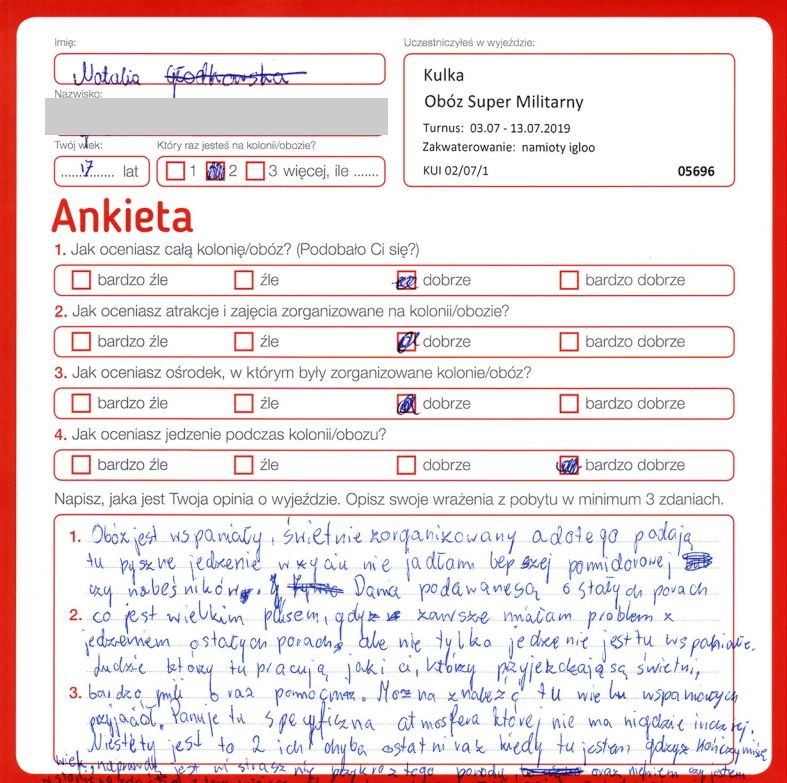 Imię:
Uczestniczyłeś w wyjeździe:
Natalia
Kulka
Obóz Super Militarny
Nazwisko:
Turnus: 03.07 - 13.07.2019
Zakwaterowanie: namioty igloo
KUI 02/07/1 05696
Twój wiek: Który raz jesteś na kolonii/obozie?
17 lat 1 2 3 więcej, ile .......
Ankieta
1. Jak oceniasz całą kolonię/obóz? (Podobało Ci się?)
bardzo źle źle dobrze bardzo dobrze
2. Jak oceniasz atrakcje i zajęcia zorganizowane na kolonii/obozie?
bardzo źle źle dobrze bardzo dobrze
3. Jak oceniasz ośrodek, w którym były zorganizowane kolonie/obóz?
bardzo źle źle dobrze bardzo dobrze
4. Jak oceniasz jedzenie podczas kolonii/obozu?
bardzo źle źle dobrze bardzo dobrze
Napisz, jaka jest Twoja opinia o wyjeździe. Opisz swoje wrażenia z pobytu w minimum 3 zdaniach.
1. Obóz jest wspaniały, świetnie zorganizowany a dotego podają
tu pyszne jedzenie w życiu nie jadłam lepszej pomidorowej
czy naleśników. Dania podawane są o stałych porach
2. co jest wielkim plusem, gdyż zawsze miałam problem z
jedzeniem o stałych porach, ale nie tylko jedzenie jest tu wspaniałe.
Ludzie którzy tu pracują jak i ci, którzy przyjeżdżają są świetni,
3. bardzo mili oraz pomocni. Można znaleźć tu wielu wspaniałych
przyjaciół. Panuje tu specyficzna atmosfera której nie ma nigdzie indziej.
Niestety jest to 2 i chyba ostatni raz kiedy tu jestem gdyż kończy mi się
wiek, naprawdę jest mi strasznie przykro z tego powodu oraz